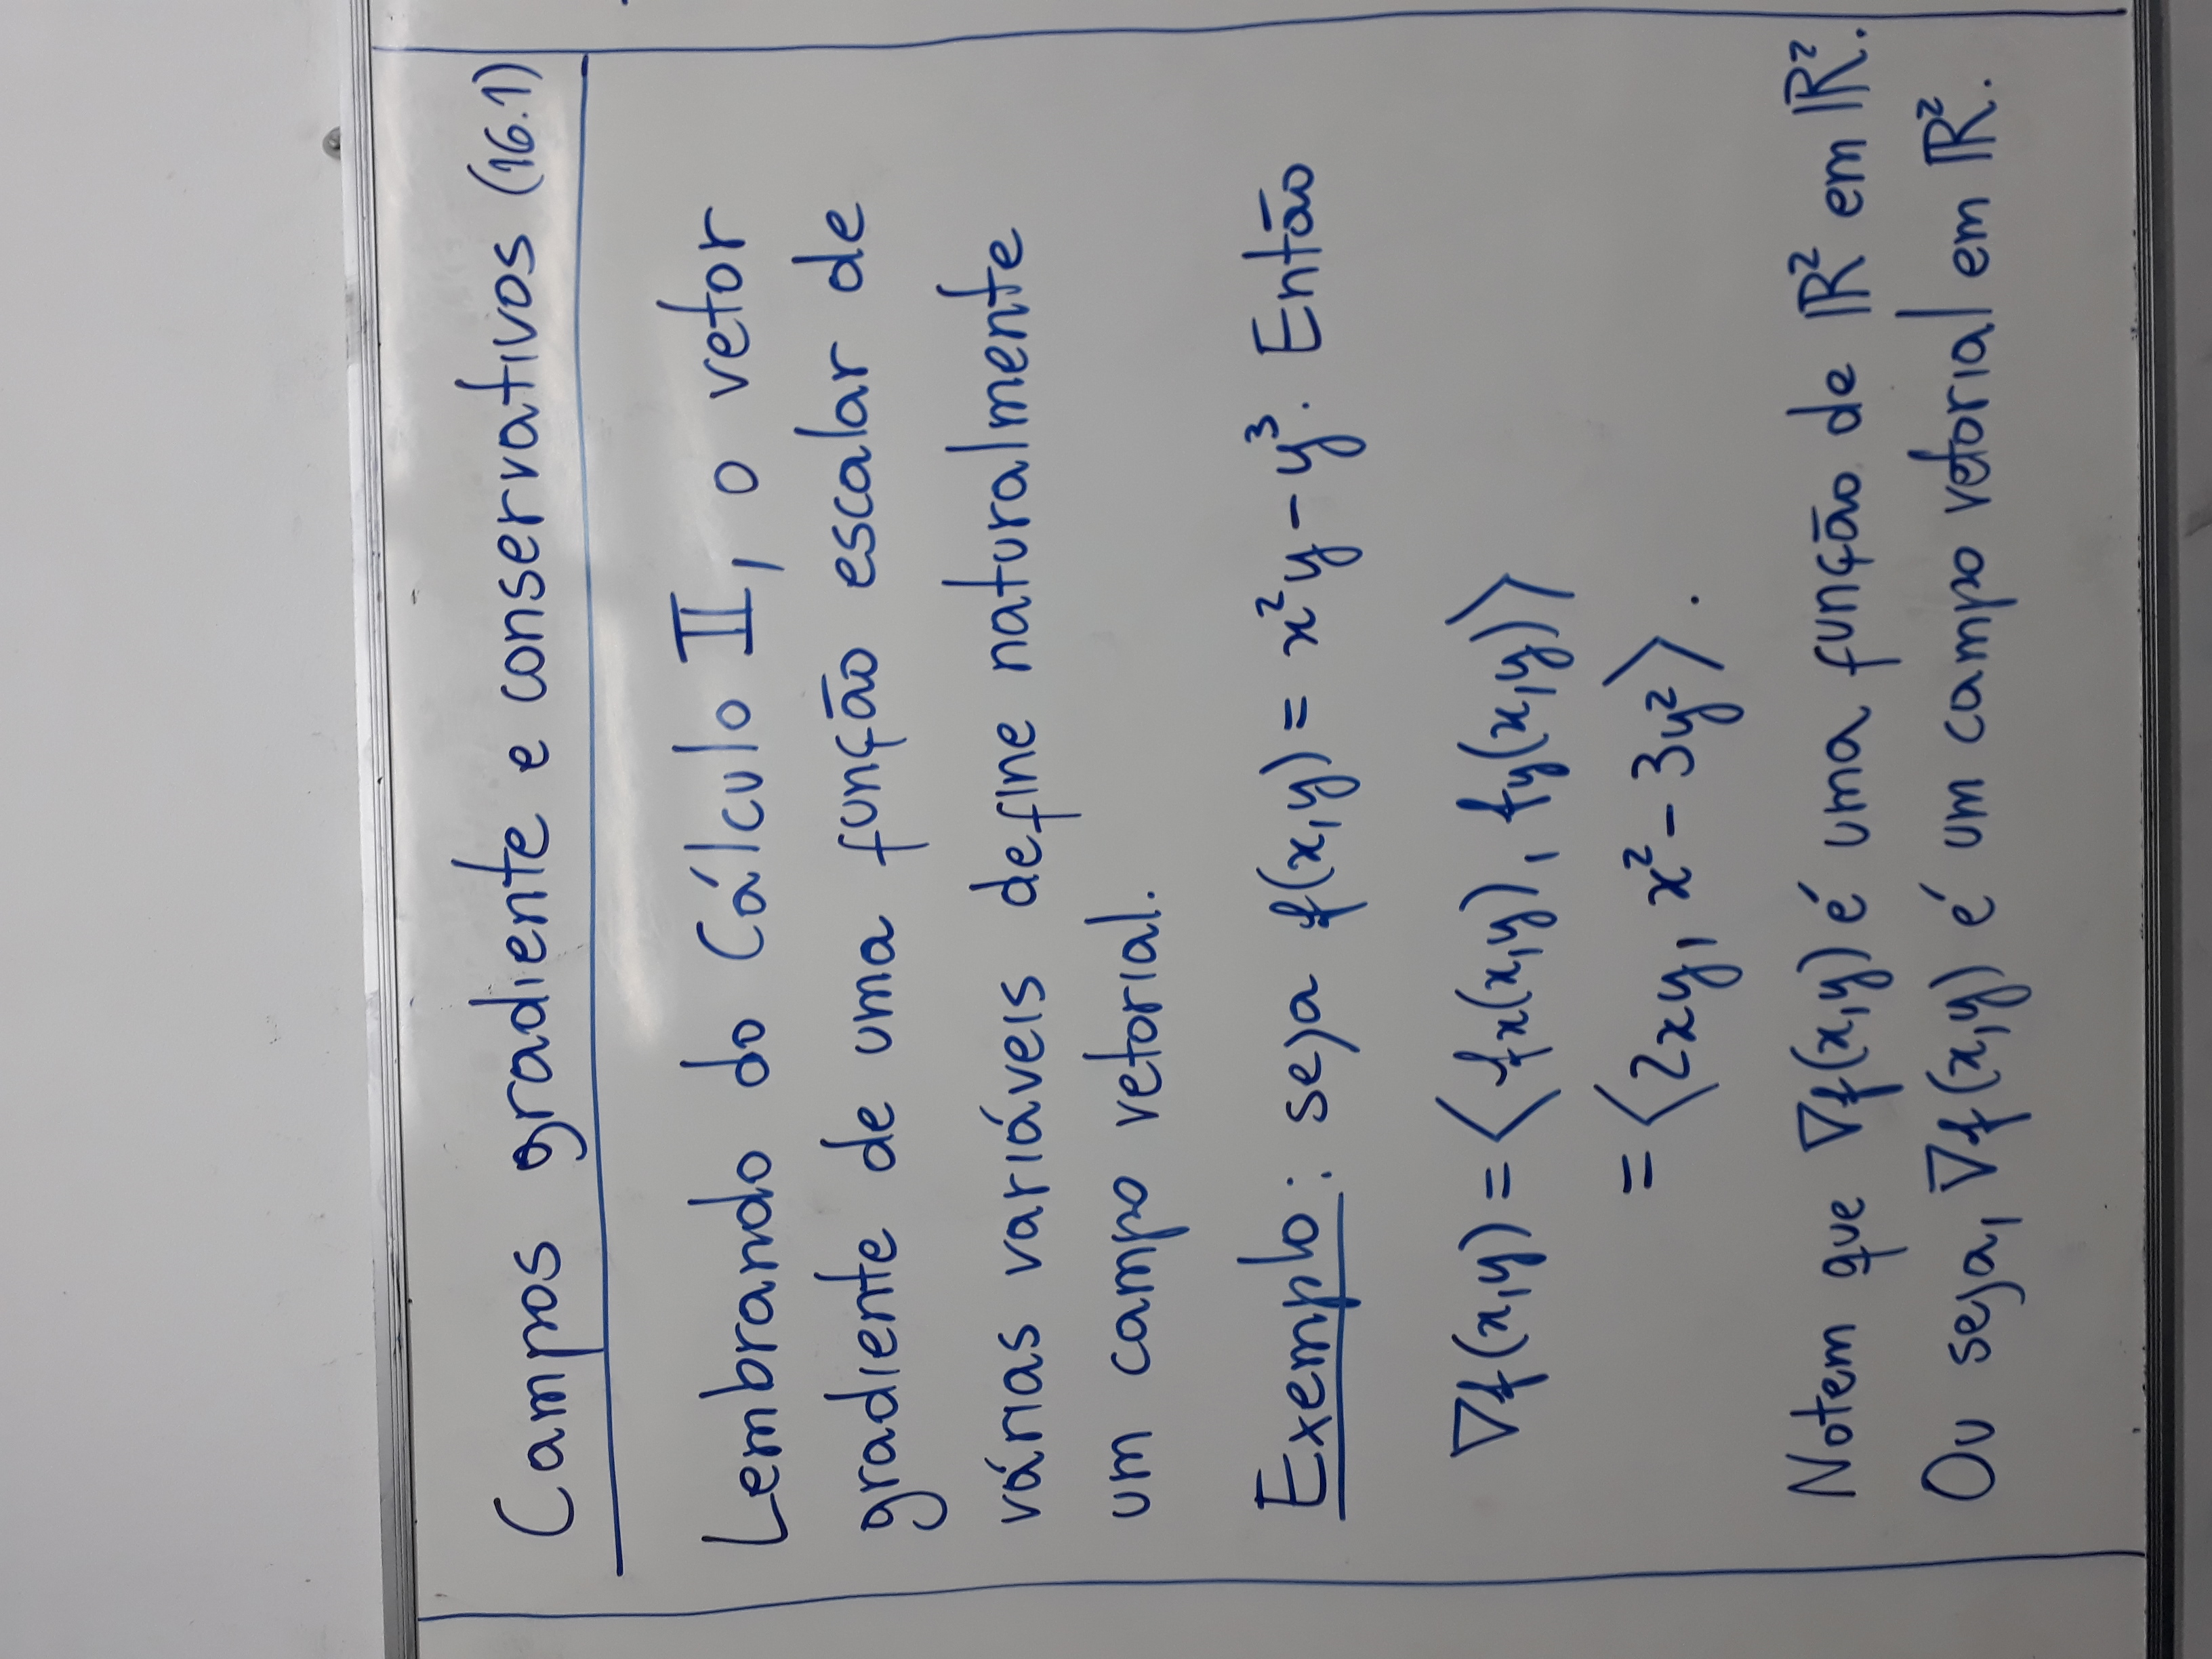 Campos gradiente e conservativos (16.1)
Lembrando do Cálculo II, o vetor
gradiente de uma função escalar de
várias variáveis define naturalmente
um campo vetorial.
Exemplo: seja f(x,y) = x²y - y³. Então
∇f(x,y) = ⟨fx(x,y), fy(x,y)⟩
= ⟨2xy, x² - 3y²⟩.
Notem que ∇f(x,y) é uma função de ℝ² em ℝ².
Ou seja, ∇f(x,y) é um campo vetorial em ℝ².